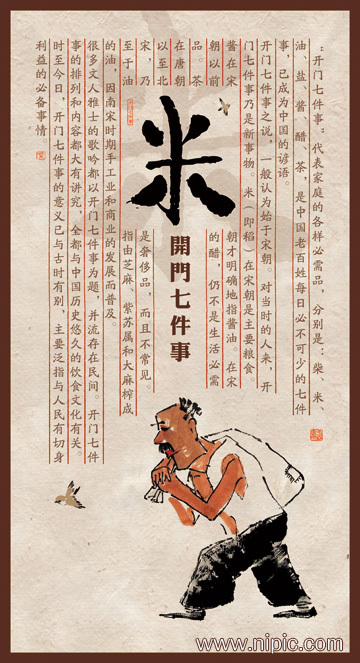 ：开门七件事：代表家庭的各样必需品，分别是：柴、米、
油、盐、酱、醋、茶，是中国老百姓每日必不可少的七件
事，已成为中国的谚语。
开门七件事之说，一般认为始于宋朝。对当时的人来，开
门七件事乃是新事物。米（即稻）在宋朝是主要粮食
酱在宋
朝才明确地指酱油。在宋
朝以前
的醋，仍不是生活必需
品。茶
在唐朝
以至北
宋，乃
是奢侈品，而且不常见。
至于油
指由芝麻、紫苏属和大麻榨成
的油，因南宋时期手工业和商业的发展而普及。
很多文人雅士的歌吟都以开门七件事为题，并流存在民间。开门七件
事的排列和内容都大有讲究，全都与中国历史悠久的饮食文化有关。
时至今日，开门七件事的意义已与古时有别，主要泛指与人民有切身
利益的必备事情。
米
開門七件事
www.nipic.com